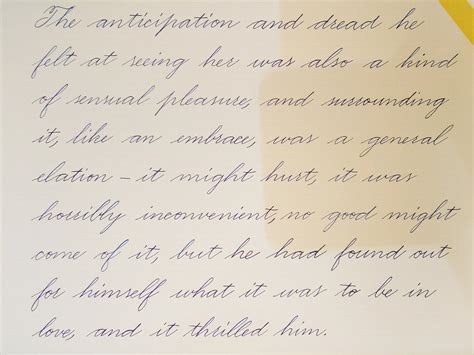 The anticipation and dread he
felt at seeing her was also a kind
of sensual pleasure, and surrounding
it, like an embrace, was a general
elation – it might hurt, it was
horribly inconvenient, no good might
come of it, but he had found out
for himself what it was to be in
love, and it thrilled him.